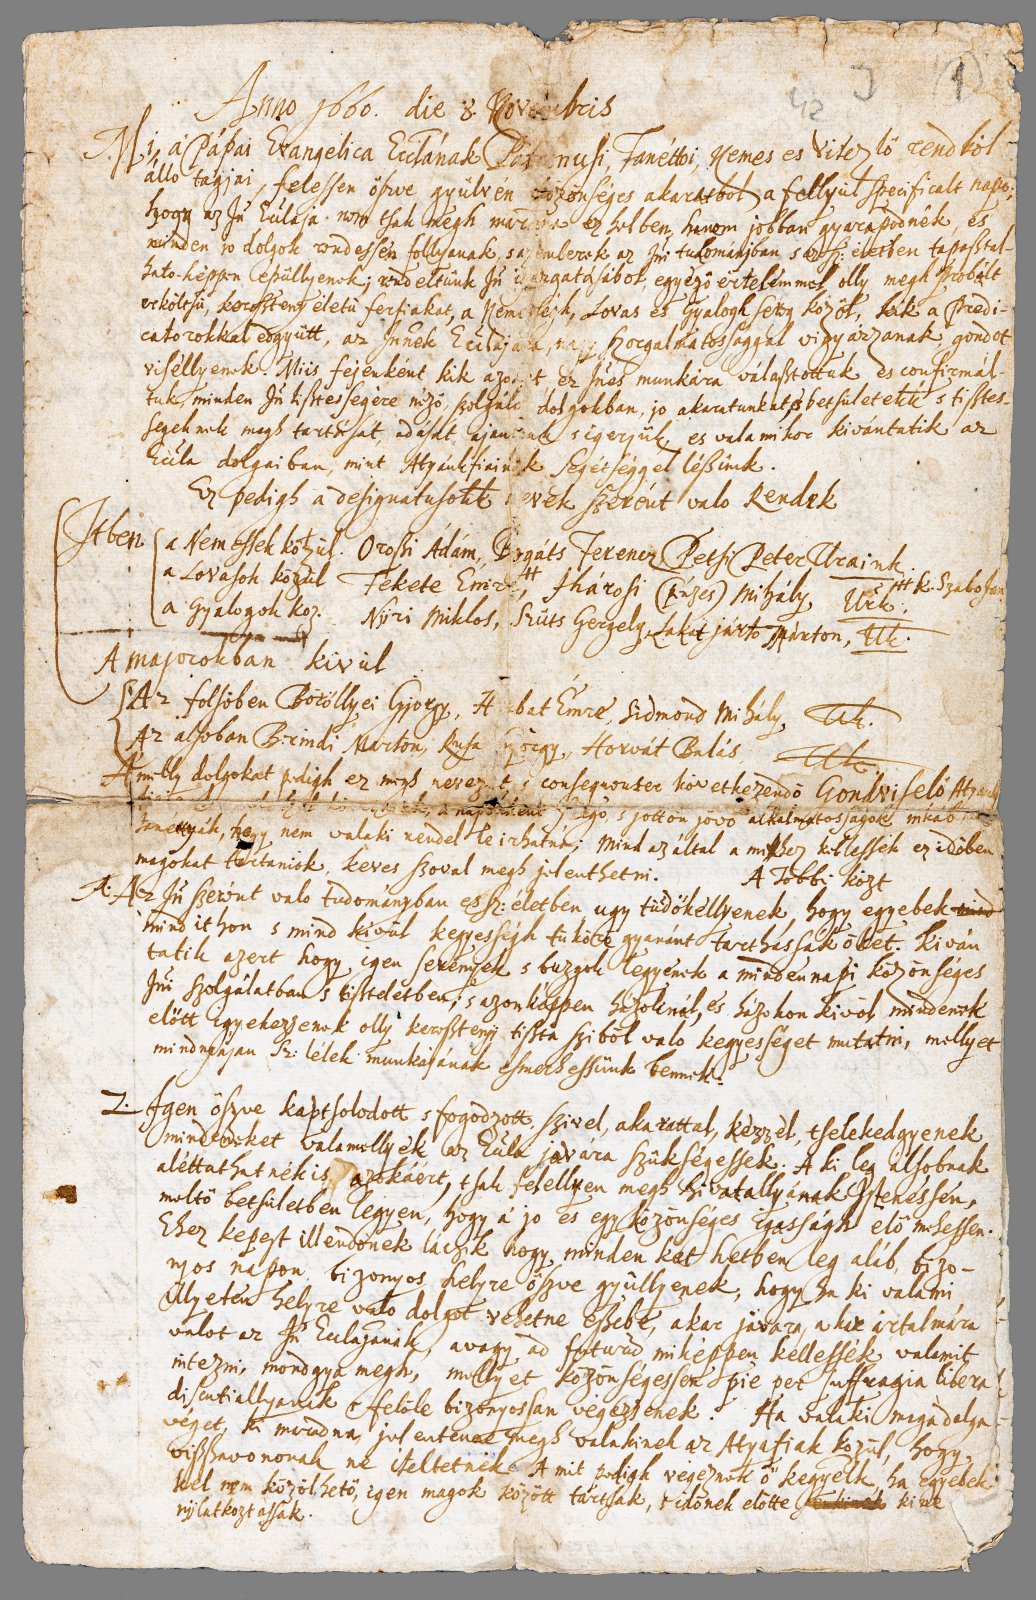 42 J (1)
Anno 1660. die 8. Novembris
Mi, a Pápai Evangelica Ecclának Patronusi, Tanétoi, Nemes es Vitezlö rendköl
állo tagjai, felessen öszve gyülvén közönséges akaratbol a fellyül specificalt napo;
hogy az Jn̄ Ecclaja. nem tsak megh marada ez helben, hanem jobban gyarapodnék, és
minden jo dolgok rendessén follyanak, s az emberek az Jn̄i tudományban s az sz: életben tapasztal-
hato-képpen épüllyenek; rendeltünk Jn̄ igazgatásábol, egyező értelemmel olly megh probált
erköltsü, keresztény életü ferfiakat, a Nemessek, Lovas és Gyalogh sereg közöl, kik a Predi-
catorokkal edgyütt, az Jn̄nek Ecclajára, nagy szorgalmatossaggal vigyázzanak, gondot
viséllyenek. Miis fejenként kik azokat, ez Jn̄es munkáraválasztottuk es confirmál-
tuk, minden Jn̄ tisztességére néző, szolgáló dolgokban, jo akaratunkat, betsületekk s tisztes-
segeknek megh tartását, adását, ajanljuk s igerjük, es valamikor kivántatik az
Eccla dolgaiban, mint Atyánkfiainak segétséggel lészünk.
Ez pedigh a designatusokk nevek szerént valo Rendek
Itben a Nemessek közzül. Oroszi Ádám, Bogáts Ferencz Petsi Peter Uraink.
a Lovasok közül Fekete Emre, Tharosi (Pénzes) Mihály, Urk. K. Szabo Jan
a Gyalogok köz. Nyiri Miklos, Szüts Gergely Lakatjárto Márton, Uk.
A majorokban kivül
Az felsöben Böröllyei György, Habat Emre, Sidmond Mihály, Uk.
Az alsoban Brindi Marton, Rusa György, Horvát Balás Uk
A melly dolgokat pedigh ez megh nevezett s consequenter következendö Gondviselő Atyánk
a naponként s jöttön jövö alkalmatosságok inkab
tanettyák, hogy nem valaki rendel le irhatná; Mind az által a mihez kellessék ez idöben
magokat tartaniok, keves szoval megh jelenthetni. A Többi közt
1. Az Jn̄ szerént valo tudományban es sz: életben ugy tündökéllyenek, hogy egyebek
mind itthon s mind kivül kegyességh tüköre gyanánt tarthassák öket. Kiván
tatik azert hogy igen serények s buzgok legyenek a mindennapi közönséges
Jn̄i szolgálatban s tiszteletben; s azonképpen házoknál, és házokon kivöl mindenek
elött igyekezzenek olly keresztény tiszta szibül valo kegyességet mutatni, mellyet
mindnyájan Sz: lélek munkájának esmerhessünk bennek.
2. Igen öszve kaptsolodott s fogodzott szivel, akarattal, kézzel, tselekedgyenek
mindeneket valamellyek az Eccla javára szükségessek. A ki leg alsobnak
aléttathatnék is azokáért, tsak felellyen megh hivatallyának Istenessén,
melto betsületben legyen, hogy a jo es egy közönséges igasságh elö mehessen.
Ehez kepest illendönek láczik hogy minden két hetben leg aláb, bizo-
nyos napon bizonyos helyre öszve gyüllyenek, hogy ha ki valami
ollyetén helyre valo dolgot vehetne eszebe, akar javára, akar ártalmára
valot az Jn̄ Ecclajanak, avagy ad futurū miképpen kellessék valamit
intezni, mondgya megh, mellyet közönségessen pie per suffragia libera
discutiallyanak s felöle bizonyossan végezzenek. Ha valaki maga dolga
véget, ki maradna, jelentene megh valakinek az Atyafiak közül, hogy
visszavononak ne iteltetnék. A mit pedigh végeznek ö kegyelk, ha egyebek
kel nem közölhetö, igen magok között tartsák, s idönek elötte kine
nyilatkoztassák.